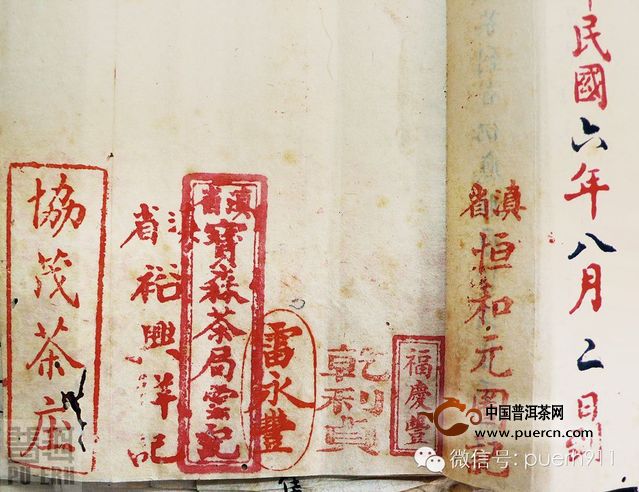 民國六年八月二日
滇省
恒和元
福慶豐
乾利貞
雷永豐
滇省
寶森茶局雲記
滇省
裕興祥記
協茂茶庄
中国普洱茶网
www.puercn.com
微信号: